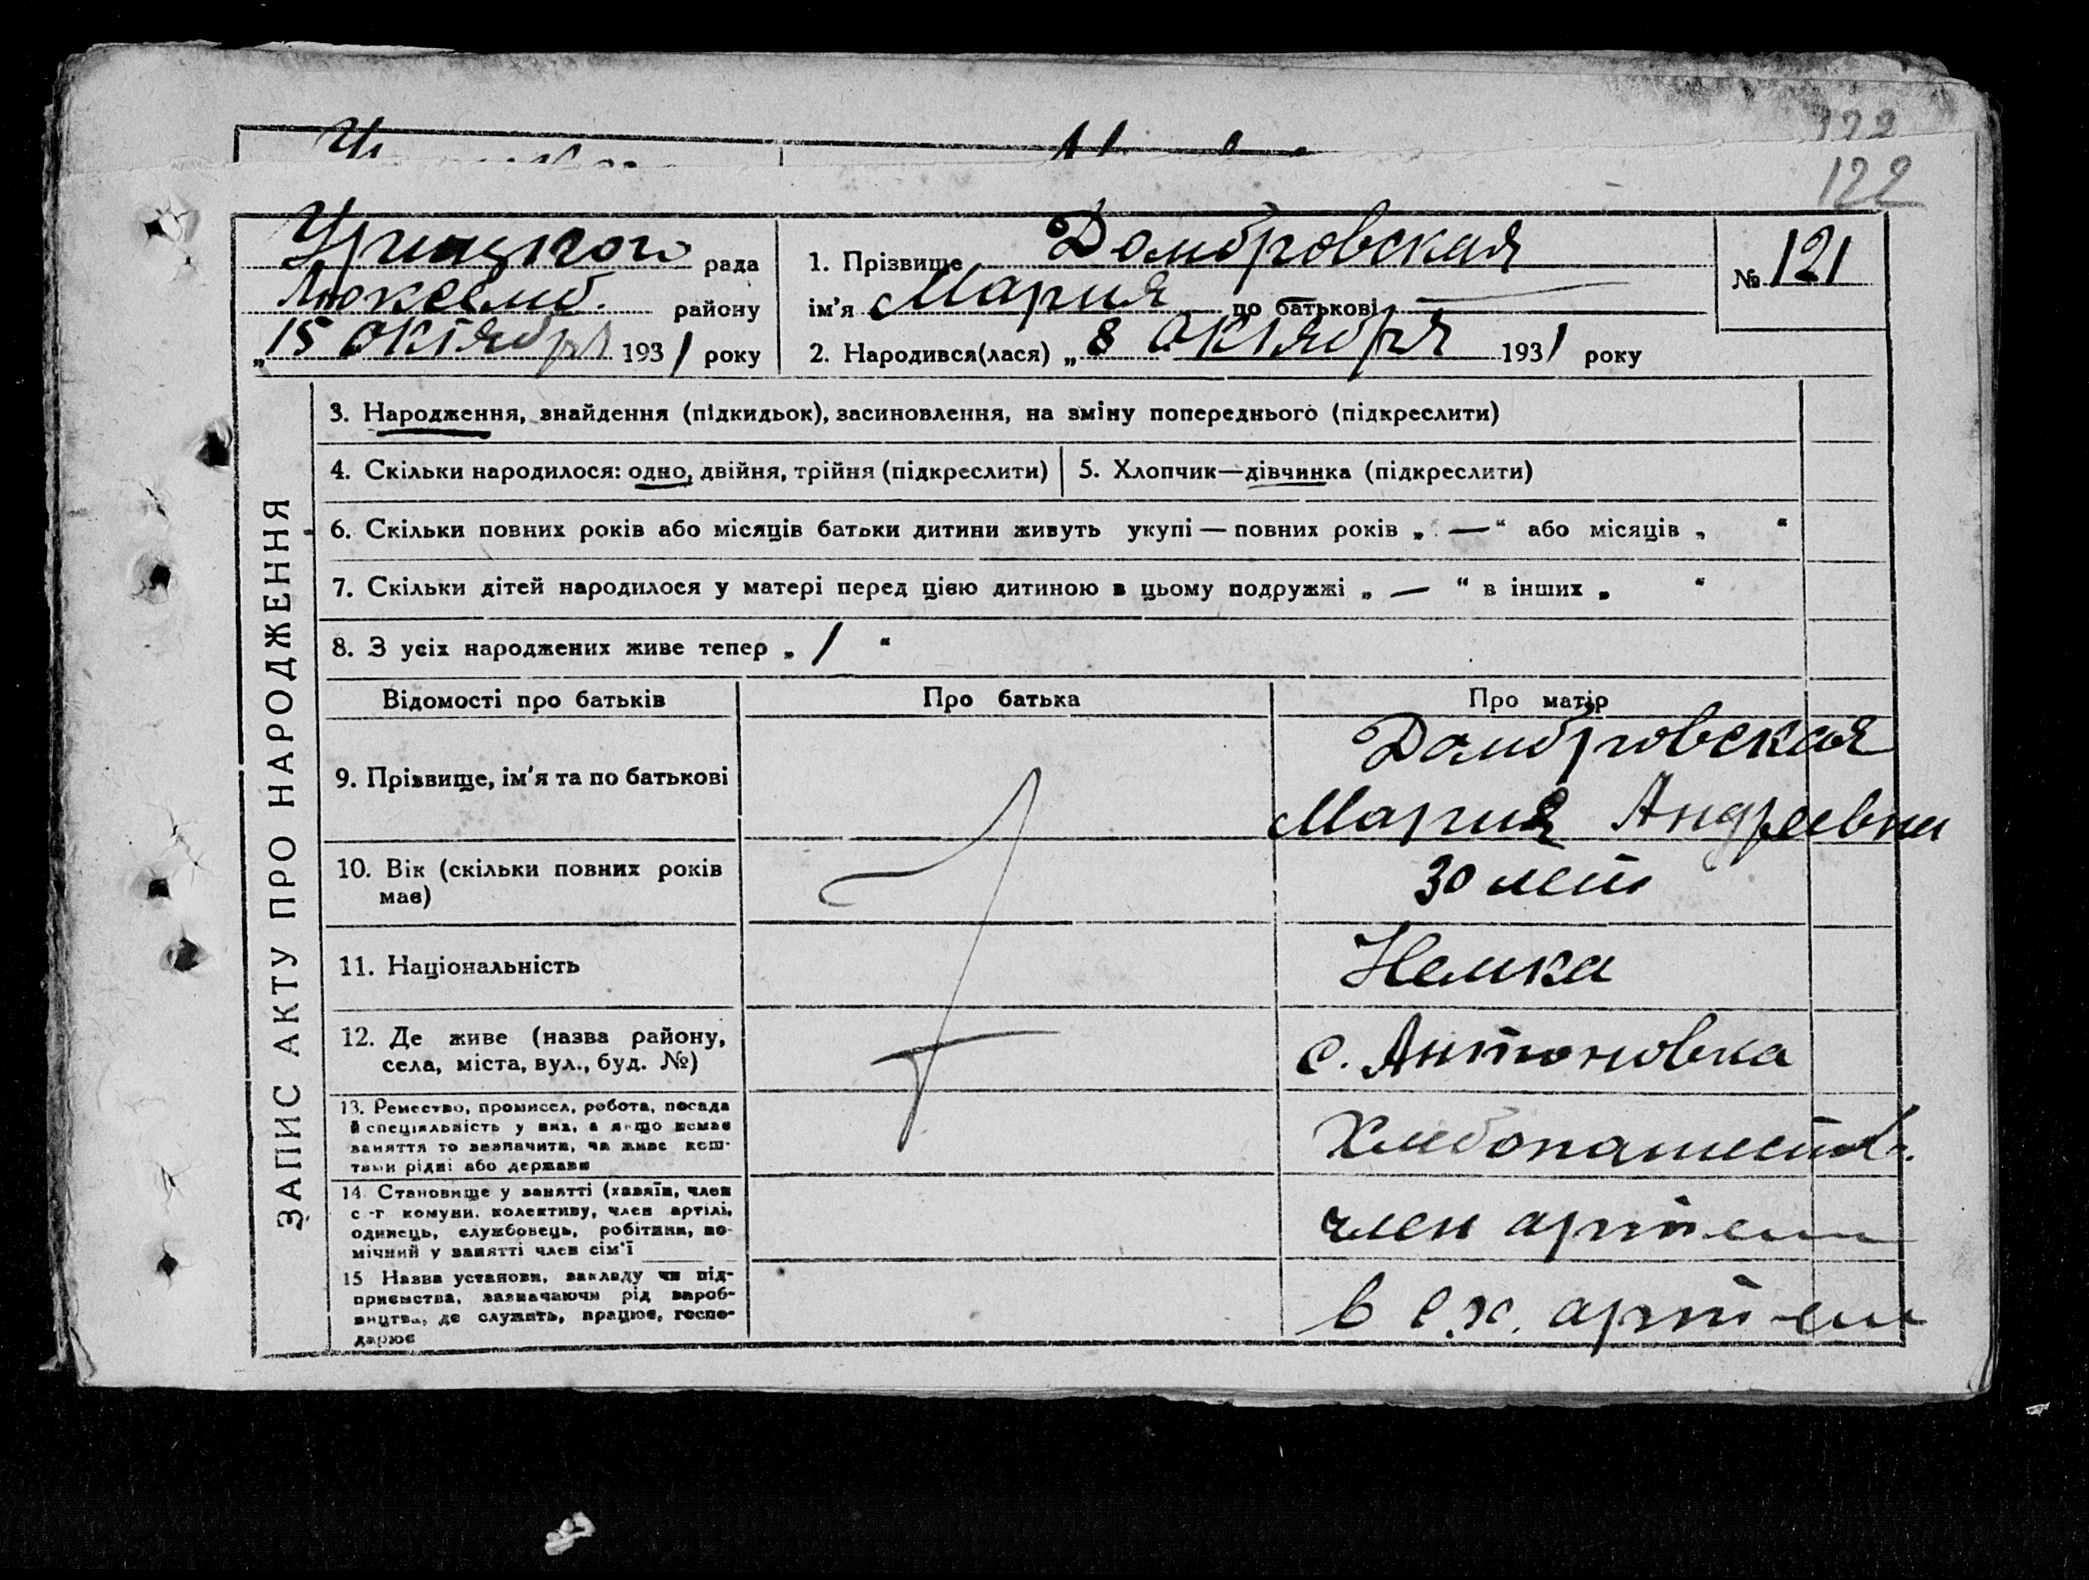 122
122
Урицкого рада
Люксемб. району
„15 октября 1931 року
1. Прізвище Домбровская
ім'я Мария по батькові —
2. Народився(лася) „8 октября 1931 року
№ 121
ЗАПИС АКТУ ПРО НАРОДЖЕННЯ
3. Народження, знайдення (підкидьок), засиновлення, на зміну попереднього (підкреслити)
4. Скільки народилося: одно, двійня, трійня (підкреслити)
5. Хлопчик—дівчинка (підкреслити)
6. Скільки повних років або місяців батьки дитини живуть укупі — повних років „ — “ або місяців „ “
7. Скільки дітей народилося у матері перед цією дитиною в цьому подружжі „ — “ в інших „ “
8. З усіх народжених живе тепер „ 1 “
Відомості про батьків
Про батька
Про матір
9. Прізвище, ім'я та по батькові
Домбровская
Мария Андреевна
10. Вік (скільки повних років
має)
30 лет
11. Національність
Немка
12. Де живе (назва району,
села, міста, вул., буд. №)
с. Антоновка
13. Ремество, промисел, робота, посада
й спеціяльність у них, а якщо немає
заняття то зазначити, чи живе кош-
тами рідні або держави
Хлебопашеств.
14. Становище у занятті (хазяїн, член
с.-г комуни, колективу, член артілі,
одинець, службовець, робітник, по-
мічний у занятті член сім'ї
член артели
15 Назва установи, закладу чи під-
приємства, зазначаючи рід вироб-
ництва, де служить, працює, госпо-
дарює
в с.х. артели